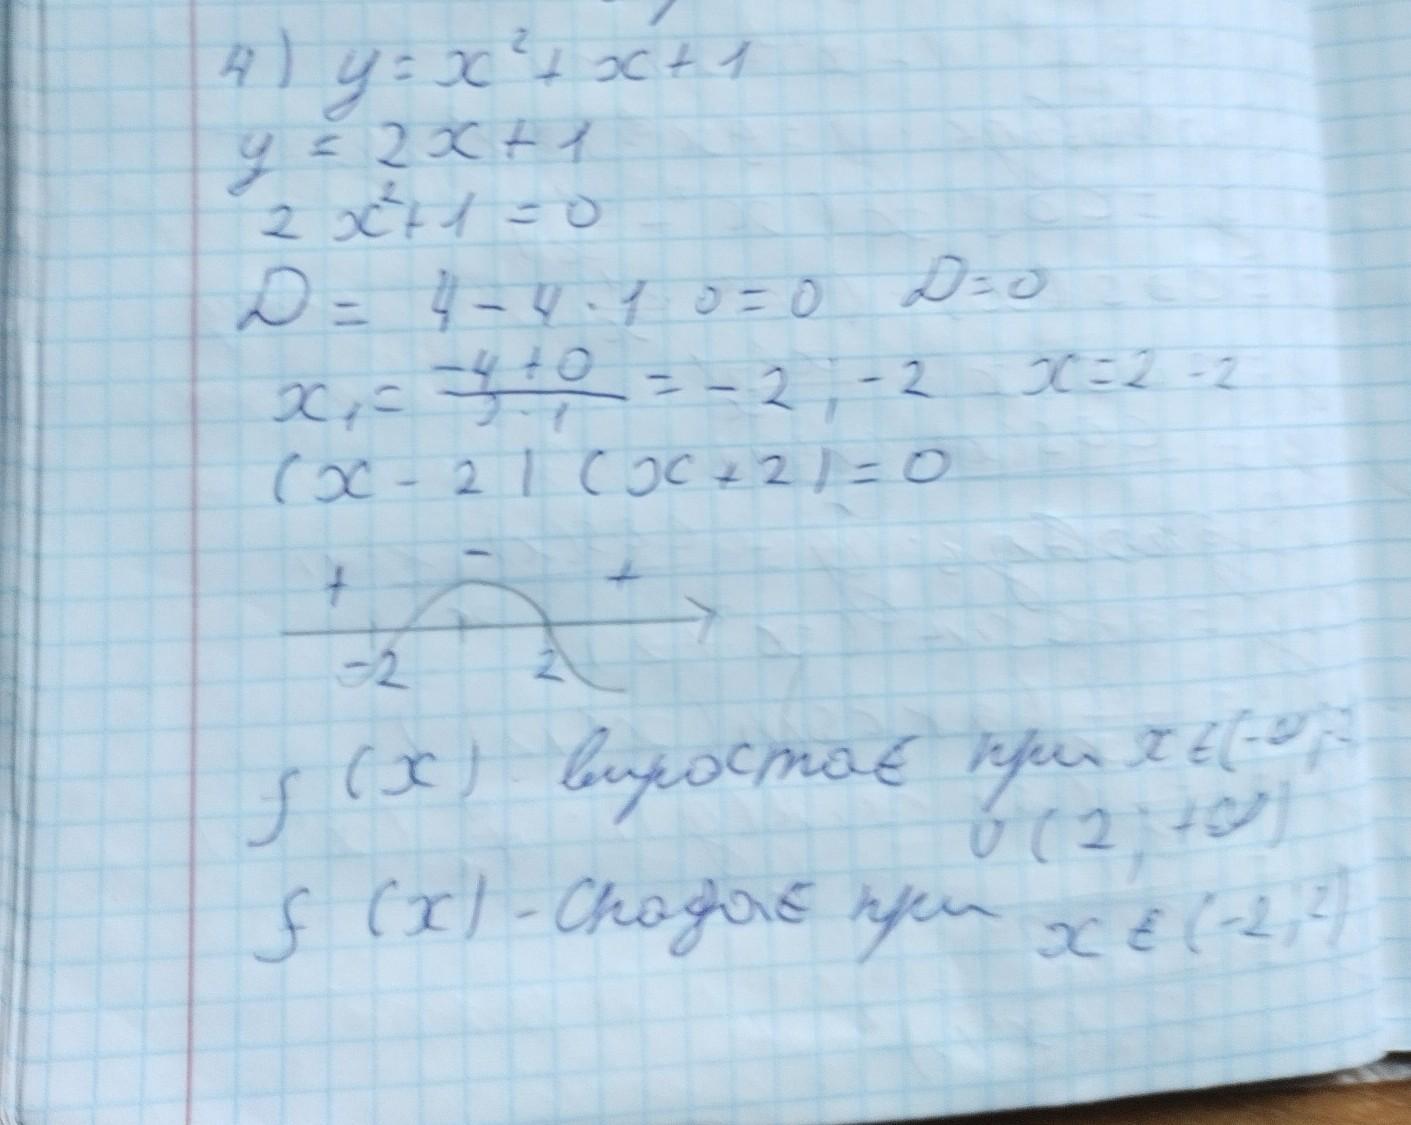 4) y = x² + x + 1
y = 2x + 1
2x² + 1 = 0
D = 4 - 4 · 1 0 = 0 D = 0
x₁ = (-4 + 0)/(2 · 1) = -2 ; -2 x = 2 -2
(x - 2) (x + 2) = 0
+ - +
-2 2
f (x) - виростає при x ∈ (-∞; -2
∪ (2; +∞)
f (x) - спадає при x ∈ (-2; 2)